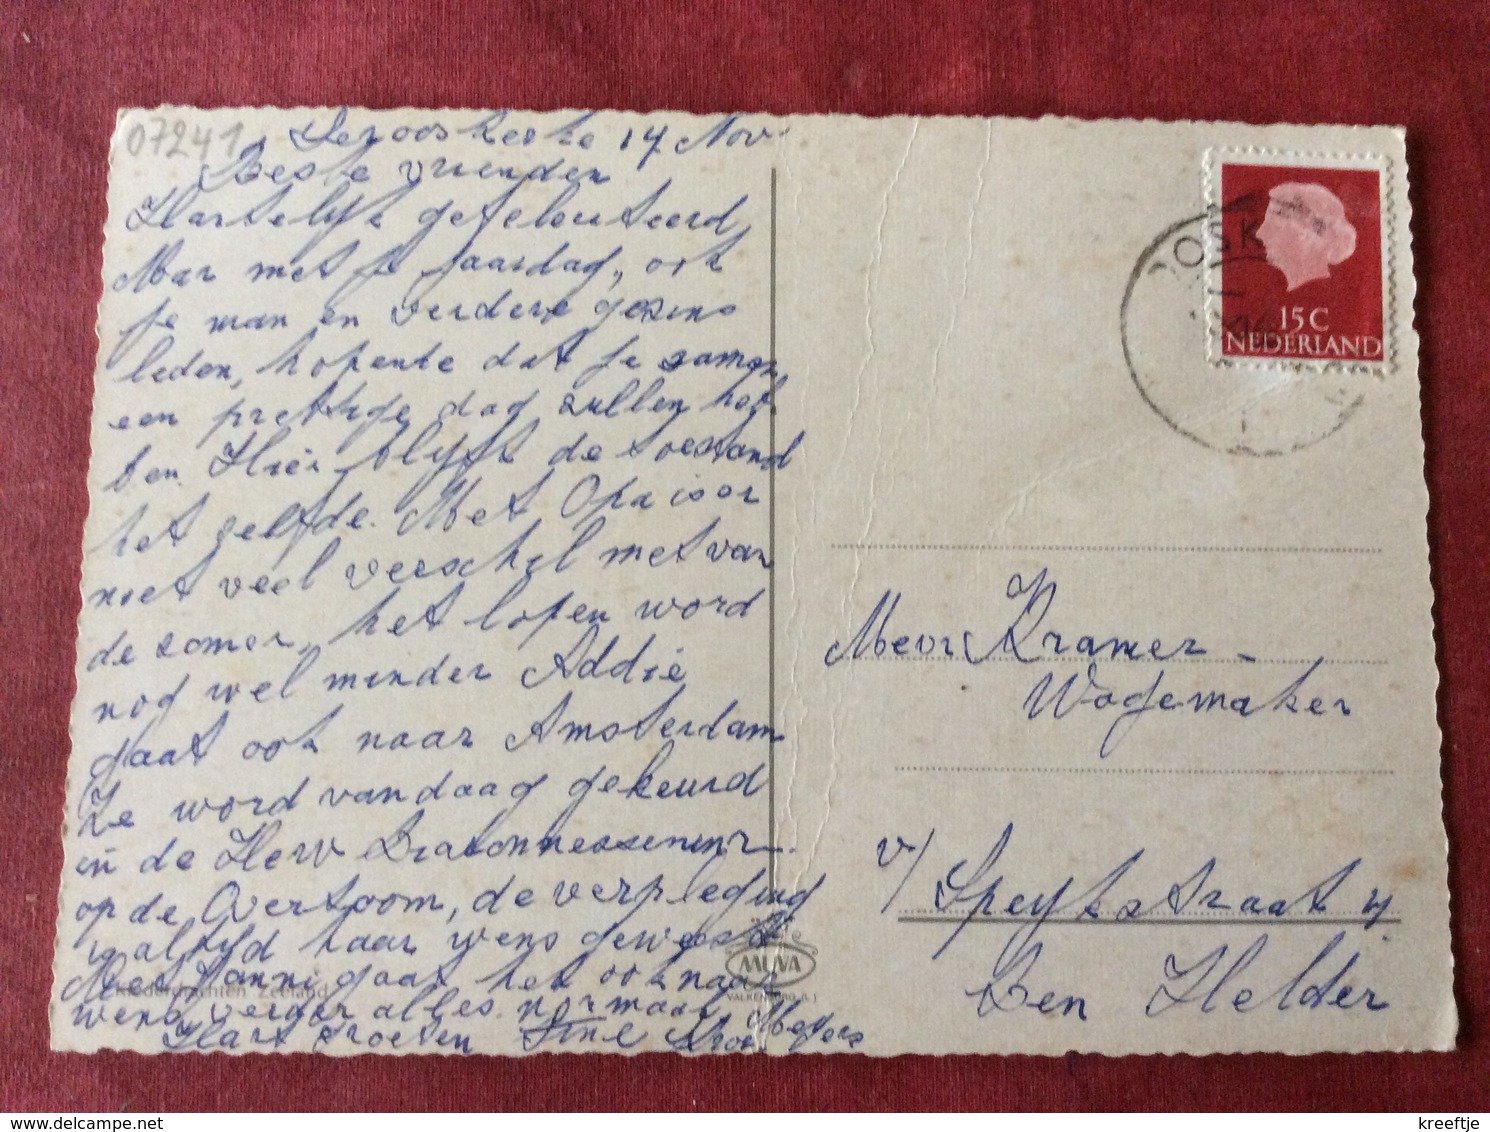 07241
Serooskerke 14 Nov.
Beste vrienden
Hartelijk gefelesiteerd
Mar met je jaardag, ook
je man en verdere gezins
leden, hopende dat je samen
een prettige dag zullen heb
ben. Hier blijft de toestand
het zelfde. Met Opa is or
niet veel verschil met van
de zomer, het lopen word
nog wel minder Addie
gaat ook naar Amsterdam
Ze word vandaag gekeurd
in de Herv
op de Overtoom, de verpleging
is altijd haar wens geweest
Met Janni gaat het ook naar
wens verder alles normaal
Hart groeten Tine Meyers
Klederdrachten Zeeland
MUVA
VALKENBURG (L.)
OSK
15 C
NEDERLAND
Mevr Kramer -
Wagemaker
v/ Speykstraat 4
Den Helder
kreeftje